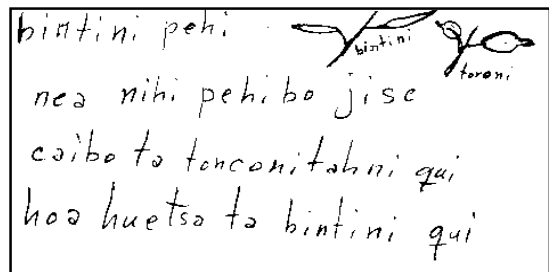 bintini pehi
bintini
toroni
nea nihi pehibo jisc
caibo ta toncanitahni qui
hoa huetsa ta bintini qui